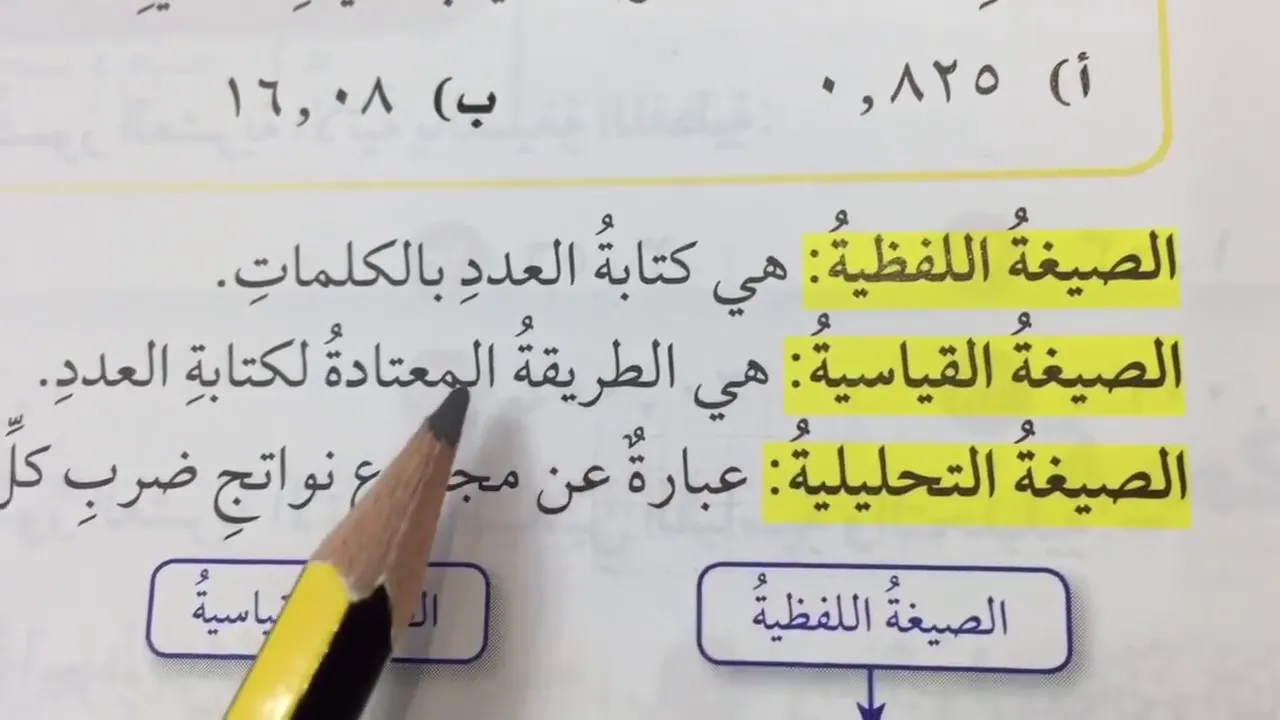 أ) ٠,٨٢٥ ب) ١٦,٠٨
الصيغةُ اللفظيةُ: هي كتابةُ العددِ بالكلماتِ.
الصيغةُ القياسيةُ: هي الطريقةُ المعتادةُ لكتابةِ العددِ.
الصيغةُ التحليليةُ: عبارةٌ عن نواتجِ ضربِ كلِّ
الصيغةُ اللفظيةُ